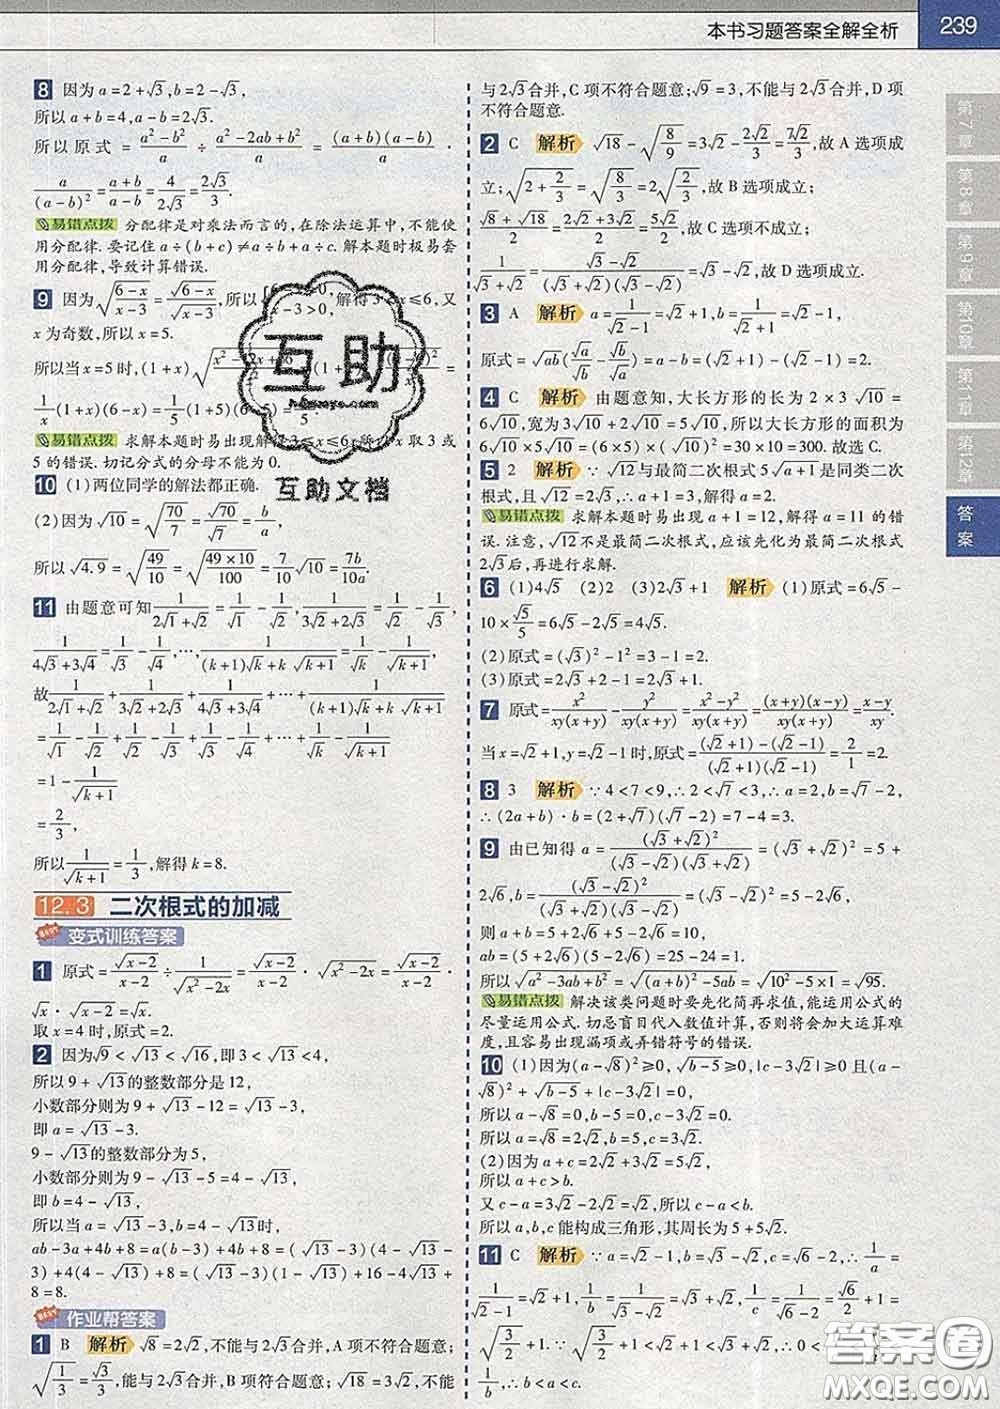 本书习题答案全解全析 239
8 因为a=2+√3,b=2-√3,
所以a+b=4,a-b=2√3.
所以原式=(a²-b²)/a÷(a²-2ab+b²)/a=(a+b)(a-b)/a·
a/(a-b)²=(a+b)/(a-b)=4/(2√3)=2√3/3.
易错点拨 分配律是对乘法而言的,在除法运算中,不能使
用分配律.要记住a÷(b+c)≠a÷b+a÷c.解本题时极易套
用分配律,导致计算错误.
9 因为√((6-x)/(x-3))=√(6-x)/√(x-3),所以
x为奇数,所以x=5.
所以当x=5时,(1+x)
1/x(1+x)(6-x)=1/5(1+5)(6-5)=
5的错误.切记分式的分母不能为0.
10 (1)两位同学的解法都正确.
(2)因为√10=√(70/7)=√70/√7=b/a,
所以√4.9=√(49/10)=√((49×10)/100)=7√10/10=7b/10a.
11 由题意可知1/(2√1+√2)=1/√1-1/√2,1/(3√2+2√3)=1/√2-1/√3,
1/(4√3+3√4)=1/√3-1/√4,…,1/((k+1)√k+k√(k+1))=1/√k-1/√(k+1),
故1/(2√1+√2)+1/(3√2+2√3)+1/(4√3+3√4)+…+1/((k+1)√k+k√(k+1))
=1/√1-1/√2+1/√2-1/√3+1/√3-1/√4+…+1/√k-1/√(k+1)
=1-1/√(k+1)
=2/3,
所以1/√(k+1)=1/3,解得k=8.
12.3 二次根式的加减
变式训练答案
1 原式=√(x-2)/(x-2)÷1/√(x²-2x)=√(x-2)/(x-2)·√(x²-2x)=√(x-2)/(x-2)·
√x·√(x-2)=√x.
取x=4时,原式=2.
2 因为√9<√13<√16,即3<√13<4,
所以9+√13的整数部分是12,
小数部分则为9+√13-12=√13-3,
即a=√13-3.
9-√13的整数部分为5,
小数部分则为9-√13-5=4-√13,
即b=4-√13,
所以当a=√13-3,b=4-√13时,
ab-3a+4b+8=a(b-3)+4b+8=(√13-3)(4-√13
-3)+4(4-√13)+8=(√13-3)(1-√13)+16-4√13+
8=8.
作业帮答案
1 B 解析 √8=2√2,不能与2√3合并,A项不符合题意;
√(1/3)=√3/3,能与2√3合并,B项符合题意;√18=3√2,不能
与2√3合并,C项不符合题意;√9=3,不能与2√3合并,D项
不符合题意.
2 C 解析 √18-√(8/9)=3√2-2√2/3=7√2/3,故A选项成
立;√(2+2/3)=√(8/3)=2√(2/3),故B选项成立;
(√8+√18)/2=(2√2+3√2)/2=5√2/2,故C选项不成立;
1/(√3+√2)=(√3-√2)/((√3+√2)(√3-√2))=√3-√2,故D选项成立.
3 A 解析 a=1/(√2-1)=√2+1,b=1/(√2+1)=√2-1,
原式=√ab(√a/√b-√b/√a)=a-b=(√2+1)-(√2-1)=2.
4 C 解析 由题意知,大长方形的长为2×3√10=
6√10,宽为3√10+2√10=5√10,所以大长方形的面积为
6√10×5√10=(6×5)×(√10)²=30×10=300.故选C.
5 2 解析 ∵√12与最简二次根式5√(a+1)是同类二次
根式,且√12=2√3,∴a+1=3,解得a=2.
易错点拨 求解本题时易出现a+1=12,解得a=11的错
误.注意,√12不是最简二次根式,应该先化为最简二次根式
2√3后,再进行求解.
6 (1)4√5 (2)2 (3)2√3+1 解析 (1)原式=6√5-
10×√5/5=6√5-2√5=4√5.
(2)原式=(√3)²-1²=3-1=2.
(3)原式=2√3+2-1=2√3+1.
7 原式=x²/(xy(x+y))-y²/(xy(x+y))=(x²-y²)/(xy(x+y))=(x+y)(x-y)/(xy(x+y))=(x-y)/xy.
当x=√2+1,y=√2-1时,原式=((√2+1)-(√2-1))/((√2+1)(√2-1))=2/1=2.
8 3 解析 ∵4<7<9,∴2<√7<3,∴a=2,b=√7-2,
∴(2a+b)·b=(2+√7)(√7-2)=7-4=3.
9 由已知得a=(√3+√2)²/((√3-√2)(√3+√2))=(√3+√2)²=5+
2√6,b=(√3-√2)²/((√3+√2)(√3-√2))=(√3-√2)²=5-2√6,
则a+b=5+2√6+5-2√6=10,
ab=(5+2√6)(5-2√6)=25-24=1.
所以√(a²-3ab+b²)=√((a+b)²-5ab)=√(10²-5×1)=√95.
易错点拨 解决该类问题时要先化简再求值,能运用公式的
尽量运用公式.切忌盲目代入数值计算,否则将会加大运算难
度,且容易出现漏项或弄错符号的错误.
10 (1)因为(a-√8)²≥0,√(b-5)≥0,|c-3√2|≥0,(a-
√8)²+√(b-5)+|c-3√2|=0,
所以a-√8=0,b-5=0,c-3√2=0.
所以a=√8=2√2,b=5,c=3√2.
(2)因为a+c=2√2+3√2=5√2,
所以a+c>b.
又c-a=3√2-2√2=√2,所以c-a<b.
所以a,b,c能构成三角形,其周长为5+5√2.
11 C 解析 ∵a=√2-1,b=√3-√2,c=√6-2,∴1/a=
1/(√2-1)=√2+1,1/b=1/(√3-√2)=√3+√2,1/c=1/(√6-2)=√6/2+1=
√(3/2)+1.∵√(3/2)+1<√2+1<√3+√2,∴0<
1/b,∴b<a<c.
第7章
第8章
第9章
第10章
第11章
第12章
答案
互助
互助文档
答案圈
MXQE.COM